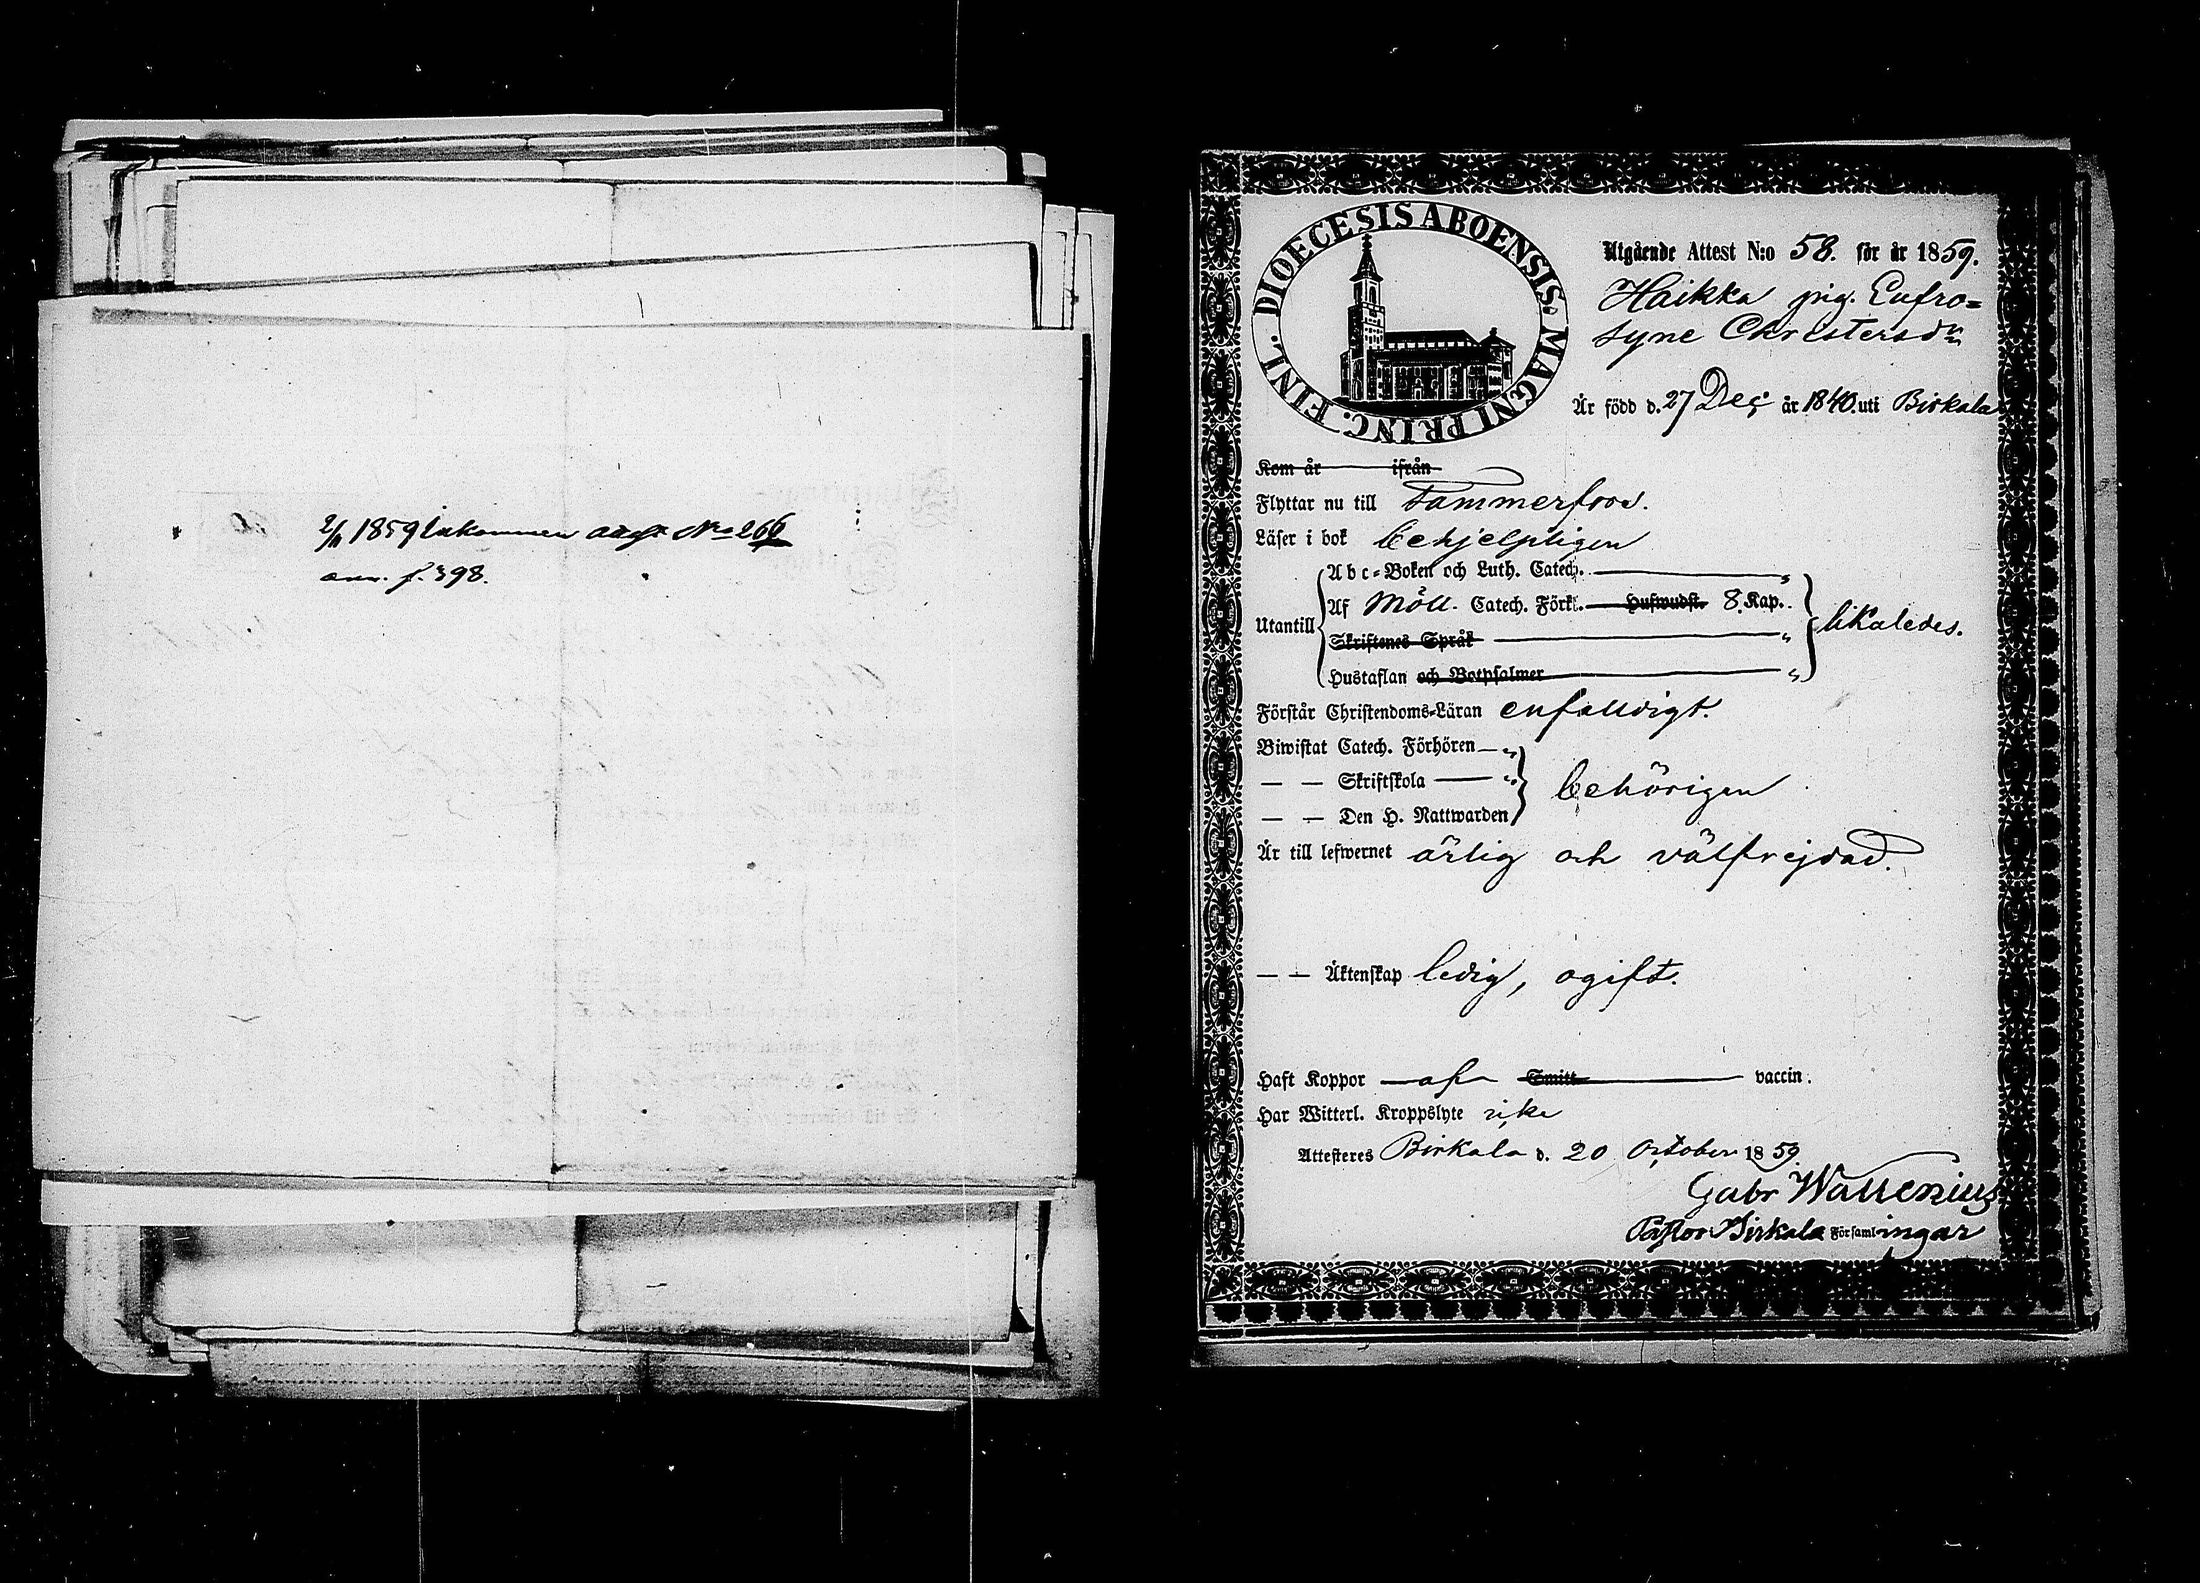 2/11 1859 Inkommen attest No 266
ann. f. 398.
DIOECESIS ABOENSIS. MAGNI PRINC. FINL.
Utgående Attest N:o 58. för år 1859.
Haikka pig. Eufro=
syne Christersdr
Är född d. 27 Dec. år 1840. uti Birkala
Kom år ifrån
Flyttar nu till Tammerfors.
Läser i bok behjelpligen
Utantill
Abc=Boken och Luth. Catech. "
Af Möll. Catech. Förkl. Hufwudst. 8. Kap.
Skriftenes Språk "
Hustaflan och Botpsalmer "
likaledes.
Förstår Christendoms=Läran enfalldigt.
Biwistat Catech. Förhören — "
— — Skriftskola — "
— — Den H. Nattwarden
behörigen
Är till lefwernet ärlig och välfrejdad.
— — Äktenskap ledig, ogift.
Haft Koppor af Smitt vaccin.
Har Witterl. Kroppslyte icke
Attesteres Birkala d. 20 October 1859
Gabr Wallenius
Pastor i Birkala Församlingar